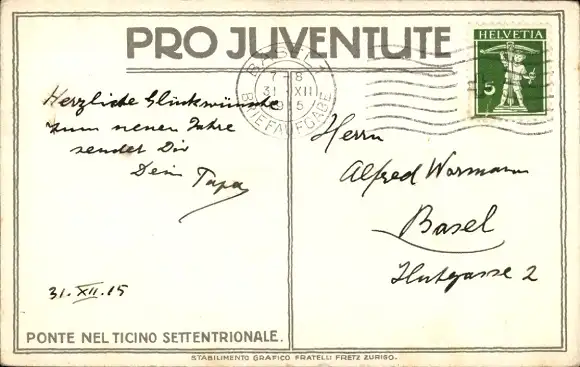 PRO JUVENTUTE
HELVETIA
5
BASEL 1
7-8
31 XII
15
BRIEFAUFGABE
Herzliche Glückwünsche
zum neuen Jahre
sendet Dir
Dein Papa
31. XII. 15
Herrn
Alfred Wormann
Basel
Hutgasse 2
PONTE NEL TICINO SETTENTRIONALE.
STABILIMENTO GRAFICO FRATELLI FRETZ ZURIGO.